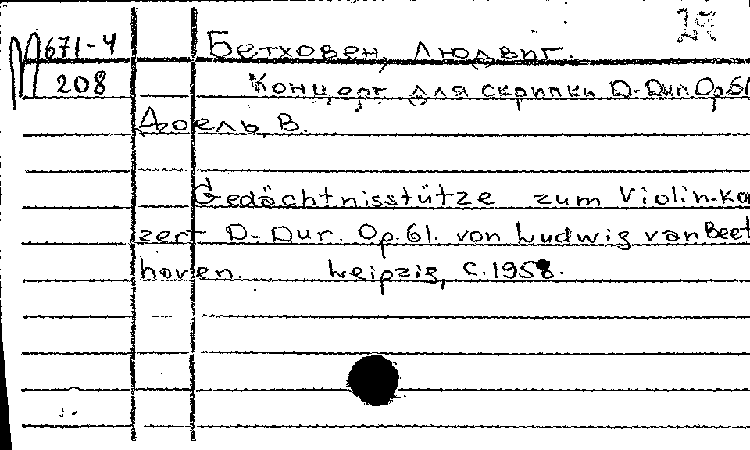 М 671-4 Бетховен, Людвиг.
208 Концерт для скрипки D-Dur. Op. 61
В.
Gedächtnisstütze zum Violin-kon
zert D-Dur. Op. 61. von Ludwig van Beet
hoven. Leipzig, C. 1958.